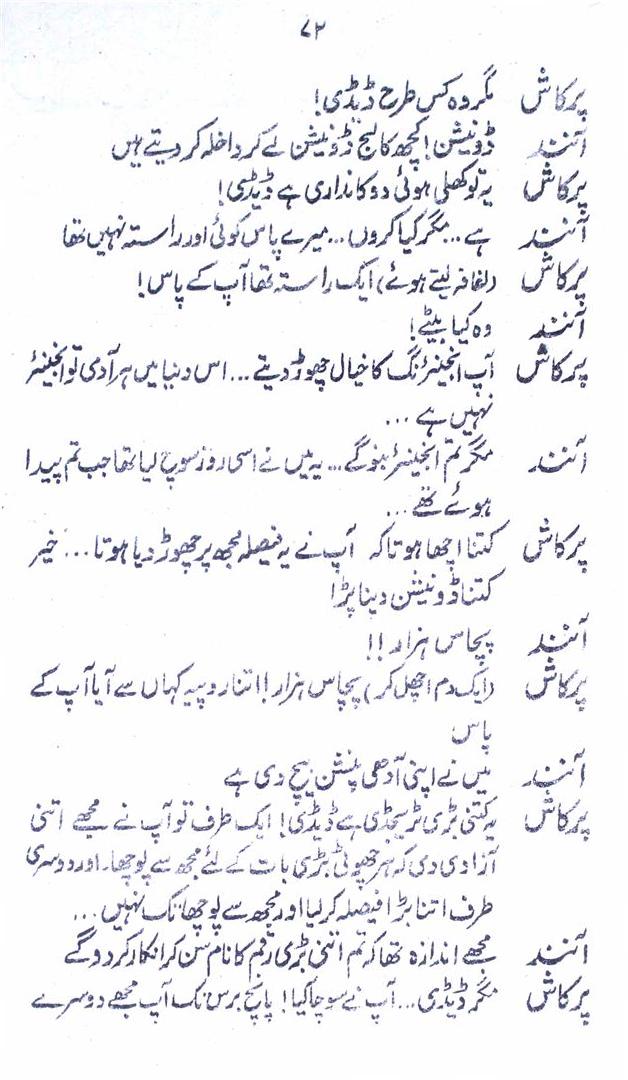 ۷۲
پرکاش مگر وہ کس طرح ڈیڈی!
آنند ڈونیشن! کچھ کالج ڈونیشن لے کر داخلہ کر دیتے ہیں
پرکاش یہ تو کھلی ہوئی دوکانداری ہے ڈیڈی!
آنند ہے... مگر کیا کروں... میرے پاس کوئی اور راستہ نہیں تھا
پرکاش (لفافہ لیتے ہوئے) ایک راستہ تھا آپ کے پاس!
آنند وہ کیا بیٹے!
پرکاش آپ انجینئرنگ کا خیال چھوڑ دیتے... اس دنیا میں ہر آدمی تو انجینئر
نہیں ہے...
آنند مگر تم انجینئر بنو گے... یہ میں نے اسی روز سوچ لیا تھا جب تم پیدا
ہوئے تھے...
پرکاش کتنا اچھا ہوتا کہ آپ نے یہ فیصلہ مجھ پر چھوڑ دیا ہوتا... خیر
کتنا ڈونیشن دینا پڑا
آنند پچاس ہزار!!
پرکاش (ایک دم اچھل کر) پچاس ہزار! اتنا روپیہ کہاں سے آیا آپ کے
پاس
آنند میں نے اپنی آدھی پنشن بیچ دی ہے
پرکاش یہ کتنی بڑی ٹریجڈی ہے ڈیڈی! ایک طرف تو آپ نے مجھے اتنی
آزادی دی کہ ہر چھوٹی بڑی بات کے لئے مجھ سے پوچھا۔ اور دوسری
طرف اتنا بڑا فیصلہ کر لیا اور مجھ سے پوچھا تک نہیں...
آنند مجھے اندازہ تھا کہ تم اتنی بڑی رقم کا نام سن کر انکار کر دو گے
پرکاش مگر ڈیڈی... آپ نے سوچا کیا! پانچ برس تک آپ مجھے دوسرے